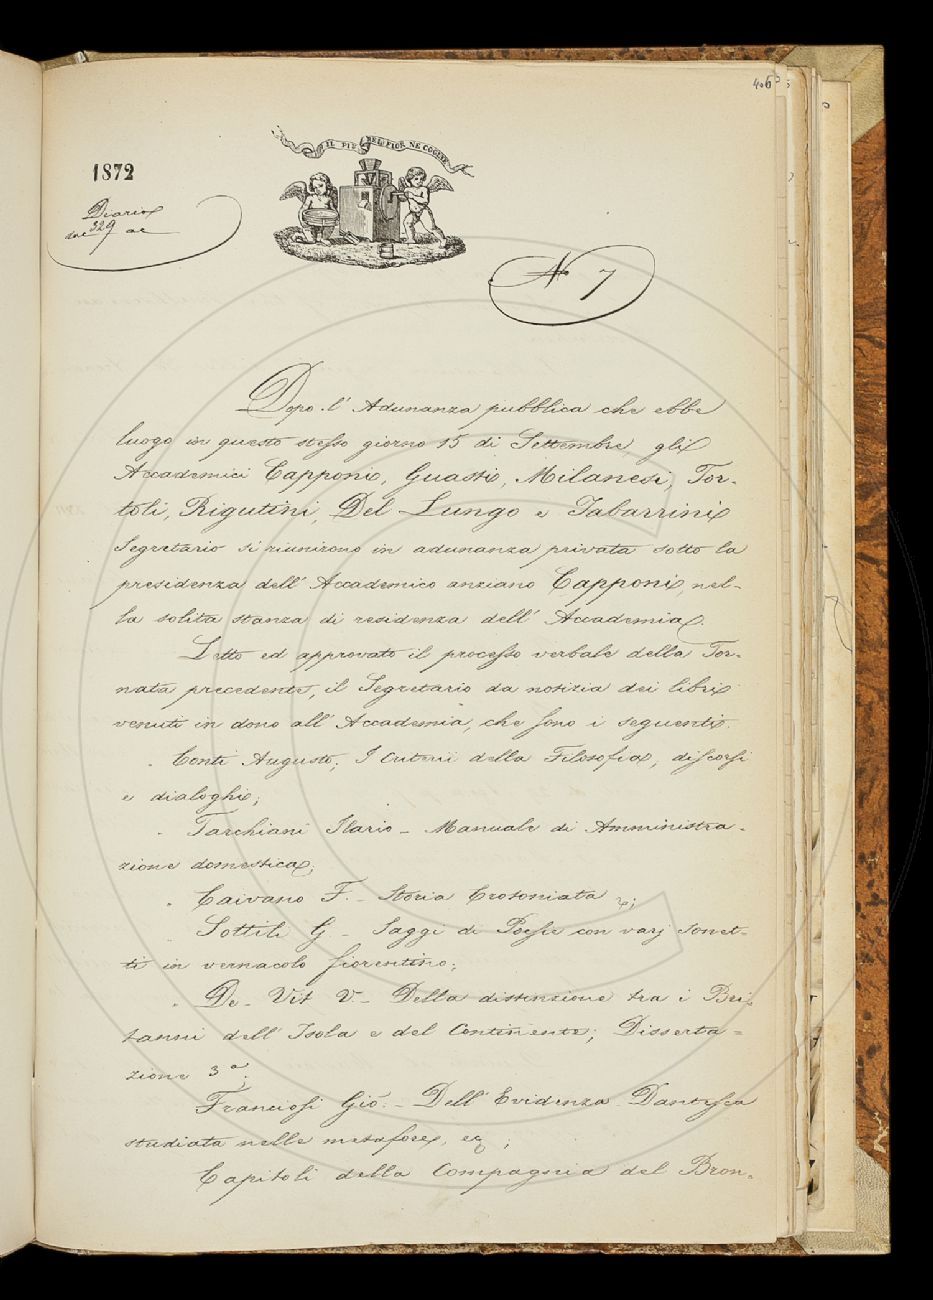 1872
Diario
329
IL PIÙ BEL FIOR NE COGLIE
N° 7
Dopo l'Adunanza pubblica che ebbe
luogo in questo stesso giorno 15 di Settembre, gli
Accademici Capponi, Guasti, Milanesi, Tor-
toli, Rigutini, Del Lungo e Tabarrini
Segretario si riunirono in adunanza privata sotto la
presidenza dell'Accademico anziano Capponi, nel-
la solita stanza di residenza dell'Accademia.
Letto ed approvato il processo verbale della Tor-
nata precedente, il Segretario da notizia dei libri
venuti in dono all'Accademia, che sono i seguenti.
Conti Augusto; I Criterii della Filosofia, discorsi
e dialoghi;
Tarchiani Ilario - Manuale di Amministra-
zione domestica;
Caivano F. - Storia Crotoniata;
Sottili G. - Saggi di Poesie con varj Sonet-
ti in vernacolo fiorentino;
De-Vit V. - Della distinzione tra i Bri-
tanni dell'Isola e del Continente; Disserta=
zione 3a;
Franciosi Gio. - Dell'Evidenza Dantesca
studiata nelle metafore, ec;
Capitoli della Compagnia del Bron-